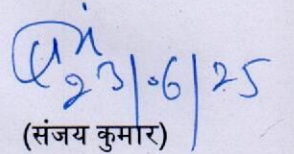 23/.6/25
(संजय कुमार)